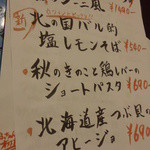 ーニ風 ¥1400-
新
北の国バル的
塩レモンそば ¥540-
秋のきのこと鶏レバーの
ショートパスタ ¥690-
北海道産ツブ貝の
アヒージョ ¥690-